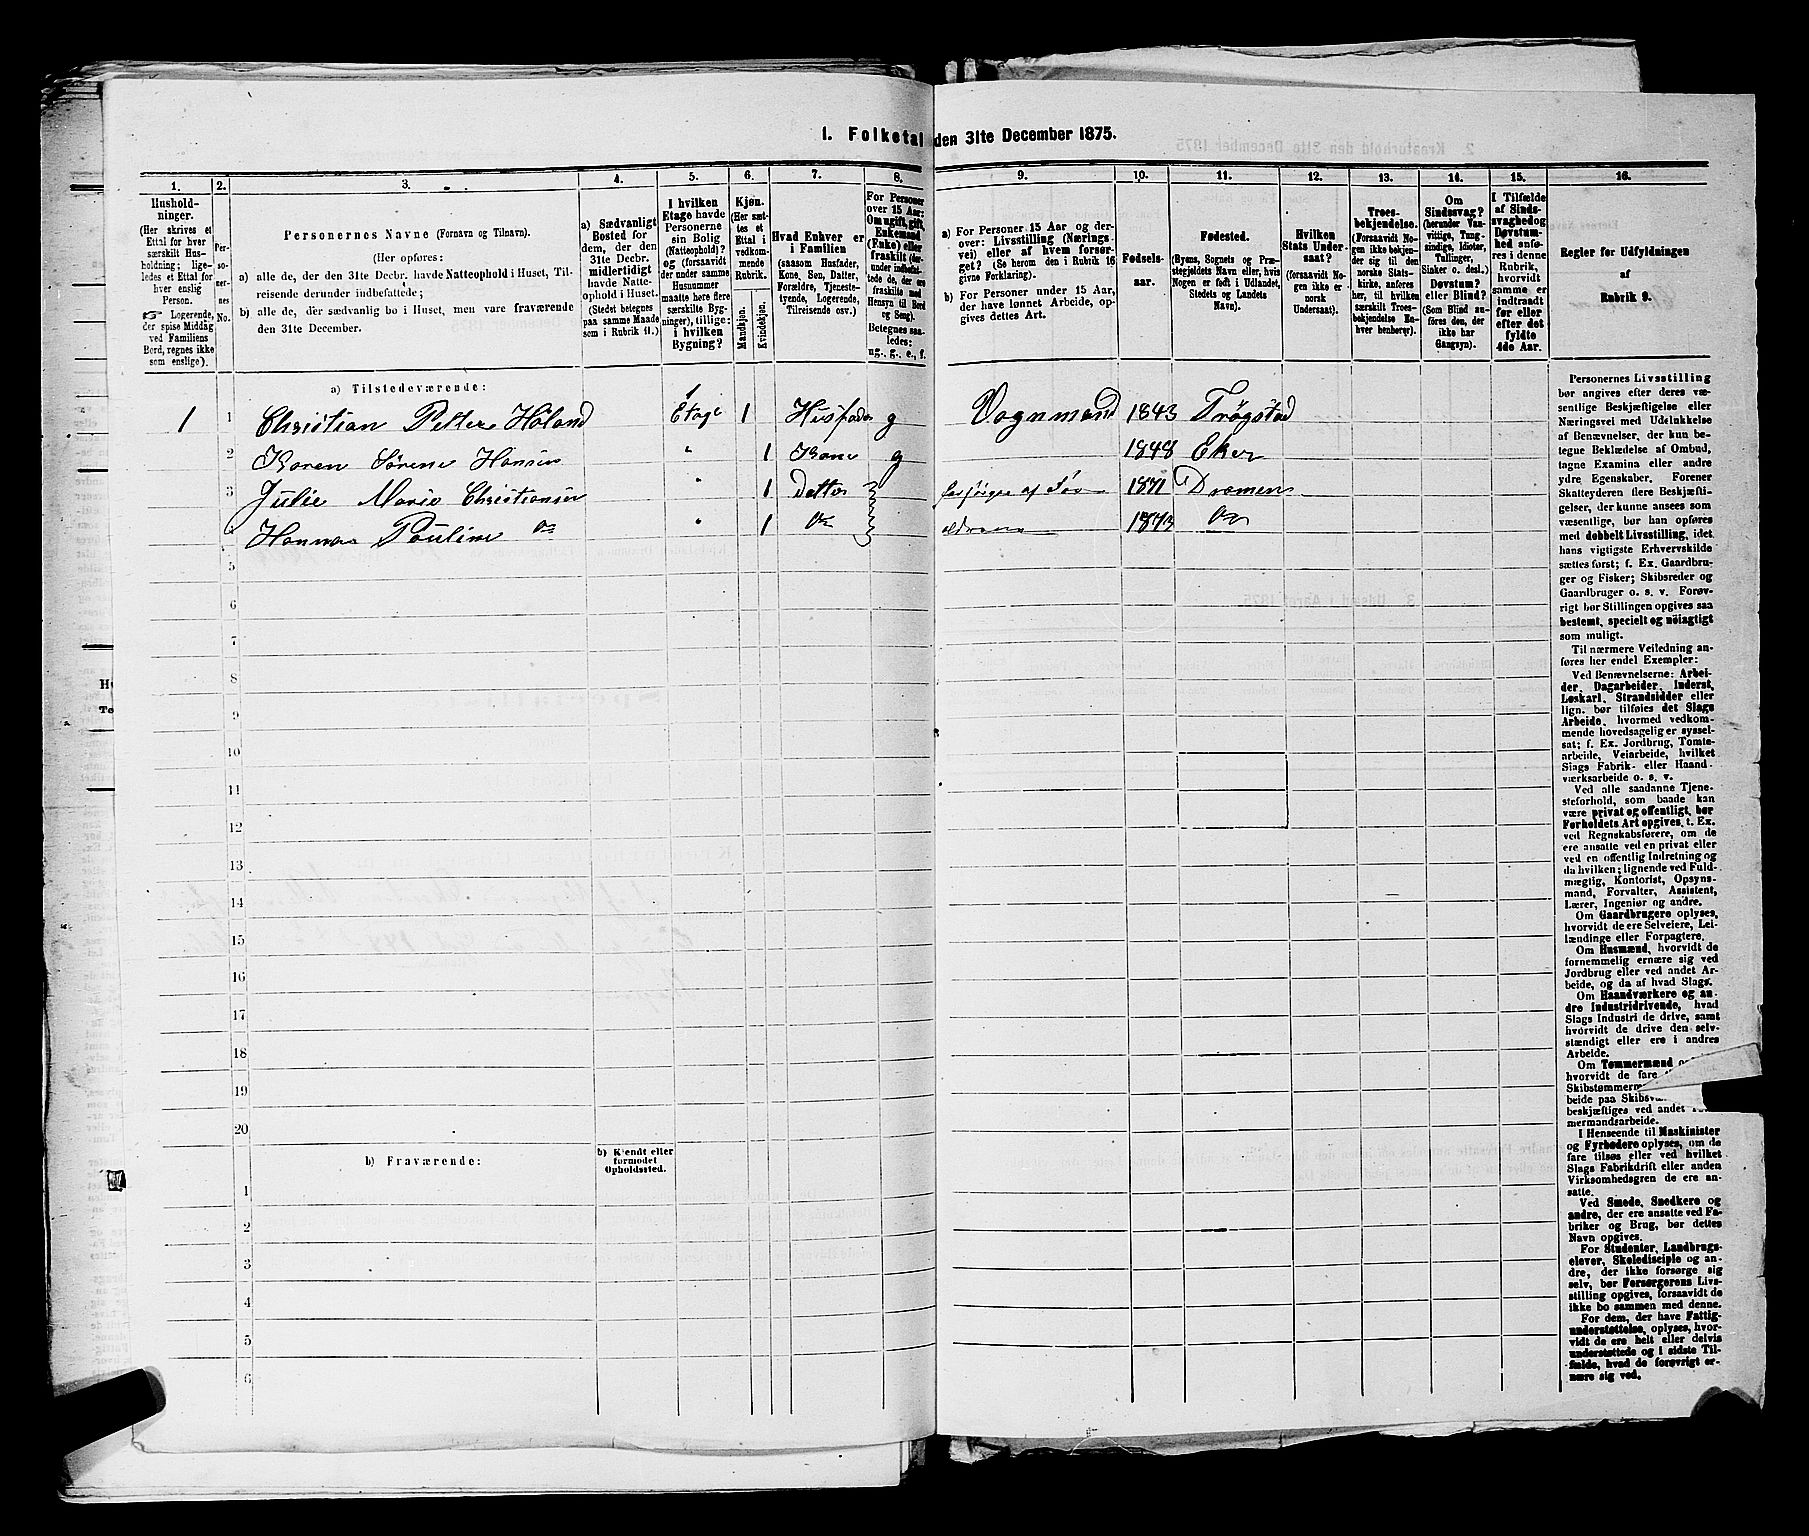 1. Folketal den 31te December 1875.
1. 2. 3. 4. 5. 6. 7. 8. 9. 10. 11. 12. 13. 14. 15. 16.
Hushold-
ninger.
(Her skrives et
Ettal for hver
særskilt Hus-
holdning; lige-
ledes et Ettal for
hver enslig
Person.
☞ Logerende,
der spise Middag
ved Familiens
Bord, regnes ikke
som enslige).
Per-
so-
ner-
nes
No.
Personernes Navne (Fornavn og Tilnavn).
(Her opføres:
a) alle de, der den 31te Decbr. havde Natteophold i Huset, Til-
reisende derunder indbefattede;
b) alle de, der sædvanlig bo i Huset, men vare fraværende
den 31te December.
a) Sædvanligt
Bosted for
dem, der den
31te Decbr.
midlertidigt
havde Natte-
ophold i Huset.
(Stedet betegnes
paa samme Maade
som i Rubrik 11.)
I hvilken
Etage havde
Personerne
sin Bolig
(Natteophold)?
og (forsaavidt
der under samme
Husnummer
maatte høre flere
særskilte Byg-
ninger), tillige:
i hvilken
Bygning?
Kjøn.
(Her sæt-
tes et
Ettal i
vedkom-
mende
Rubrik.
Mandkjøn.
Kvindekjøn.
Hvad Enhver er
i Familien
(saasom Husfader,
Kone, Søn, Datter,
Forældre, Tjeneste-
tyende, Logerende,
Tilreisende osv.)
For Personer
over 15 Aar:
Om ugift, gift,
Enkemand
(Enke) eller
fraskilt (der-
under indbefat-
tede de, der ere
fraskilte med
Hensyn til Bord
og Seng).
Betegnes saa-
ledes:
ug., g., e., f.
a) For Personer 15 Aar og der-
over: Livsstilling (Nærings-
vei) eller af hvem forsør-
get? (Se herom den i Rubrik 16
givne Forklaring).
b) For Personer under 15 Aar,
der have lønnet Arbeide, op-
gives dettes Art.
Fødsels-
aar.
Fødested.
(Byens, Sognets og Præ-
stegjeldets Navn eller, hvis
Nogen er født i Udlandet,
Stedets og Landets
Navn).
Hvilken
Stats Under-
saat?
(forsaavidt No-
gen ikke er
norsk
Undersaat).
Troes-
bekjendelse.
(Forsaavidt No-
gen ikke bekjen-
der sig til den
norske Stats-
kirke, anføres
her, til hvilken
særskilt Troes-
bekjendelse En-
hver henhører).
Om
Sindssvag?
(herunder Van-
vittige, Tung-
sindige, Idioter,
Tullinger,
Sinker o. desl.)
Døvstum?
eller Blind?
(Som Blind an-
føres den, der
ikke har
Gangsyn).
I Tilfælde
af Sinds-
svaghed og
Døvstum-
hed anfø-
res i denne
Rubrik,
hvorvidt
samme er
indtraadt
før eller
efter det
fyldte
4de Aar.
Regler for Udfyldningen
af
Rubrik 9.
a) Tilstedeværende:
1 1 Christian Petter Höland Etage 1 Husfader g Vognmand 1843 Trøgstad
2 Karen Sørene Hansen " 1 Kone g 1848 Eker
3 Julie Marie Christiansen " 1 Datter forsörges af For- 1871 Dramen
Hanna Pauline Do " 1 Do ældrene 1873 Do
5
6
7
8
9
10
11
12
13
14
15
16
17
18
19
20
b) Fraværende:
b) Kjendt eller
formodet
Opholdssted.
1
2
3
4
5
6
Personernes Livsstilling
bør angives efter deres væ-
sentlige Beskjæftigelse eller
Næringsvei med Udelukkelse
af Benævnelser, der kun be-
tegne Beklædelse af Ombud,
tagne Examina eller andre
ydre Egenskaber. Forener
Skatteyderen flere Beskjæfti-
gelser, der kunne ansees som
væsentlige, bør han opføres
med dobbelt Livsstilling, idet
hans vigtigste Erhvervskilde
sættes først; f. Ex. Gaardbru-
ger og Fisker; Skibsreder og
Gaardbruger o. s. v. Forøv-
rigt bør Stillingen opgives saa
bestemt, specielt og nöiagtigt
som muligt.
Til nærmere Veiledning an-
føres her endel Exempler:
Ved Benævnelserne: Arbei-
der, Dagarbeider, Inderst,
Løskarl, Strandsidder eller
lign. bør tilføies det Slags
Arbeide, hvormed vedkom-
mende hovedsagelig er syssel-
sat; f. Ex. Jordbrug, Tomte-
arbeide, Veiarbeide, hvilket
Slags Fabrik- eller Haand-
værksarbeide o. s. v.
Ved alle saadanne Tjene-
steforhold, som baade kan
være privat og offentligt, bør
Forholdets Art opgives, t. Ex.
ved Regnskabsførere, om de
ere ansatte ved en privat eller
ved en offentlig Indretning og
da hvilken; lignende ved Fuld-
mægtig, Kontorist, Opsyns-
mand, Forvalter, Assistent,
Lærer, Ingeniør og andre.
Om Gaardbrugere oplyses,
hvorvidt de ere Selveiere, Lei-
lændinge eller Forpagtere.
Om Husmænd, hvorvidt de
fornemmelig ernære sig ved
Jordbrug eller ved andet Ar-
beide, og da af hvad Slags.
Om Haandværkere og an-
dre Industridrivende, hvad
Slags Industri de drive, samt
hvorvidt de drive den selv-
stændigt eller ere i andres
Arbeide.
Om Tømmermænd
hvorvidt de fare
Skibstømmer
beide paa
beskjæftiges ved andet
mermandsarbeide.
I Henseende til Maskinister
og Fyrbødere oplyses, om de
fare tilsøs eller ved hvilket
Slags Fabrikdrift eller anden
Virksomhedsgren de ere an-
satte.
Ved Smede, Snedkere og
andre, der ere ansatte ved Fa-
briker og Brug, bør dettes
Navn opgives.
For Studenter, Landbrugs-
elever, Skoledisciple og an-
dre, der ikke forsørge sig
selv, bør Forsørgerens Livs-
stilling opgives, forsaavidt de
ikke bo sammen med denne.
For dem, der have Fattig-
understøttelse, oplyses, hvor-
vidt de ere helt eller delvis
understøttede og i sidste Til-
fælde, hvad de forøvrigt er-
nære sig ved.